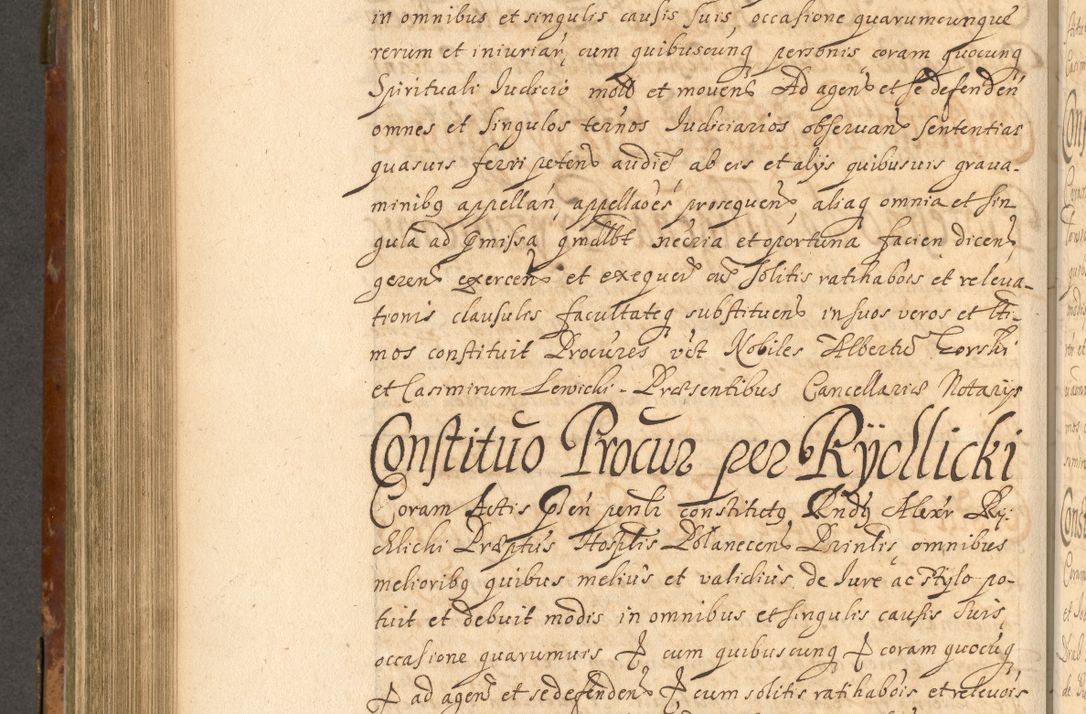 in omnibus et singulis causis suis occasione quarumcunque
rerum et iniuriar, cum quibuscunq personis coram quocunq
Spirituali Iudicio mott et movens Ad agens et se defendeń
omnes et singulos termos Iudiciarios observans sententias
quasuis ferri petens audiē ab eis et alys quibusuis grava-
minibq appellań, appellaoēs prosequens, aliaq omnia et sin
gula ad pmissa qmdlbt necria et oportuna facien dicens
gerens exercens et exequeń cū solitis ratihabois et releva-
tionis clausulis facultateq substituens in suos veros et ltti-
mos constituit Procures vēt Nobiles Albertū Gorski
et Casimirum Lewicki - Præsentibus Cancellariæ Notarys
Constituo Procur per Rÿchlicki
Coram Actis pleń psnli constitutq Rndq Alexr Ry:
chlicki Præptus Hosplis Połanecens Printis omnibus
melioribq quibus melius et validius de Iure ac stylo po-
tuit et debuit modis in omnibus et singulis causis suis
occasione quarumuis ꝑ cum quibuscunq ꝑ coram quocuq
ꝑ ad agens et se defendens ꝑ cum solitis ratihabois et relevois